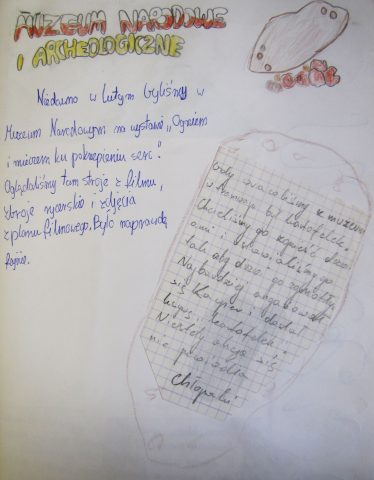 MUZEUM NARODOWE
I ARCHEOLOGICZNE
Niedawno w lutym byliśmy w
Muzeum Narodowym na wystawie "Ogniem
i mieczem ku pokrzepieniu serc".
Oglądaliśmy tam stroje z filmu,
zbroje rycerskie i zdjęcia
z planu filmowego. Było naprawdę
fajnie.
Gdy wracaliśmy z muzeum
w tramwaju był kartofelek.
Chcieliśmy go kopnąć
i
tak aby
Najbardziej angażował
się Kacper i dostał
"kartofelek".
Niestety akcja się
nie powiodła
Chłopaki